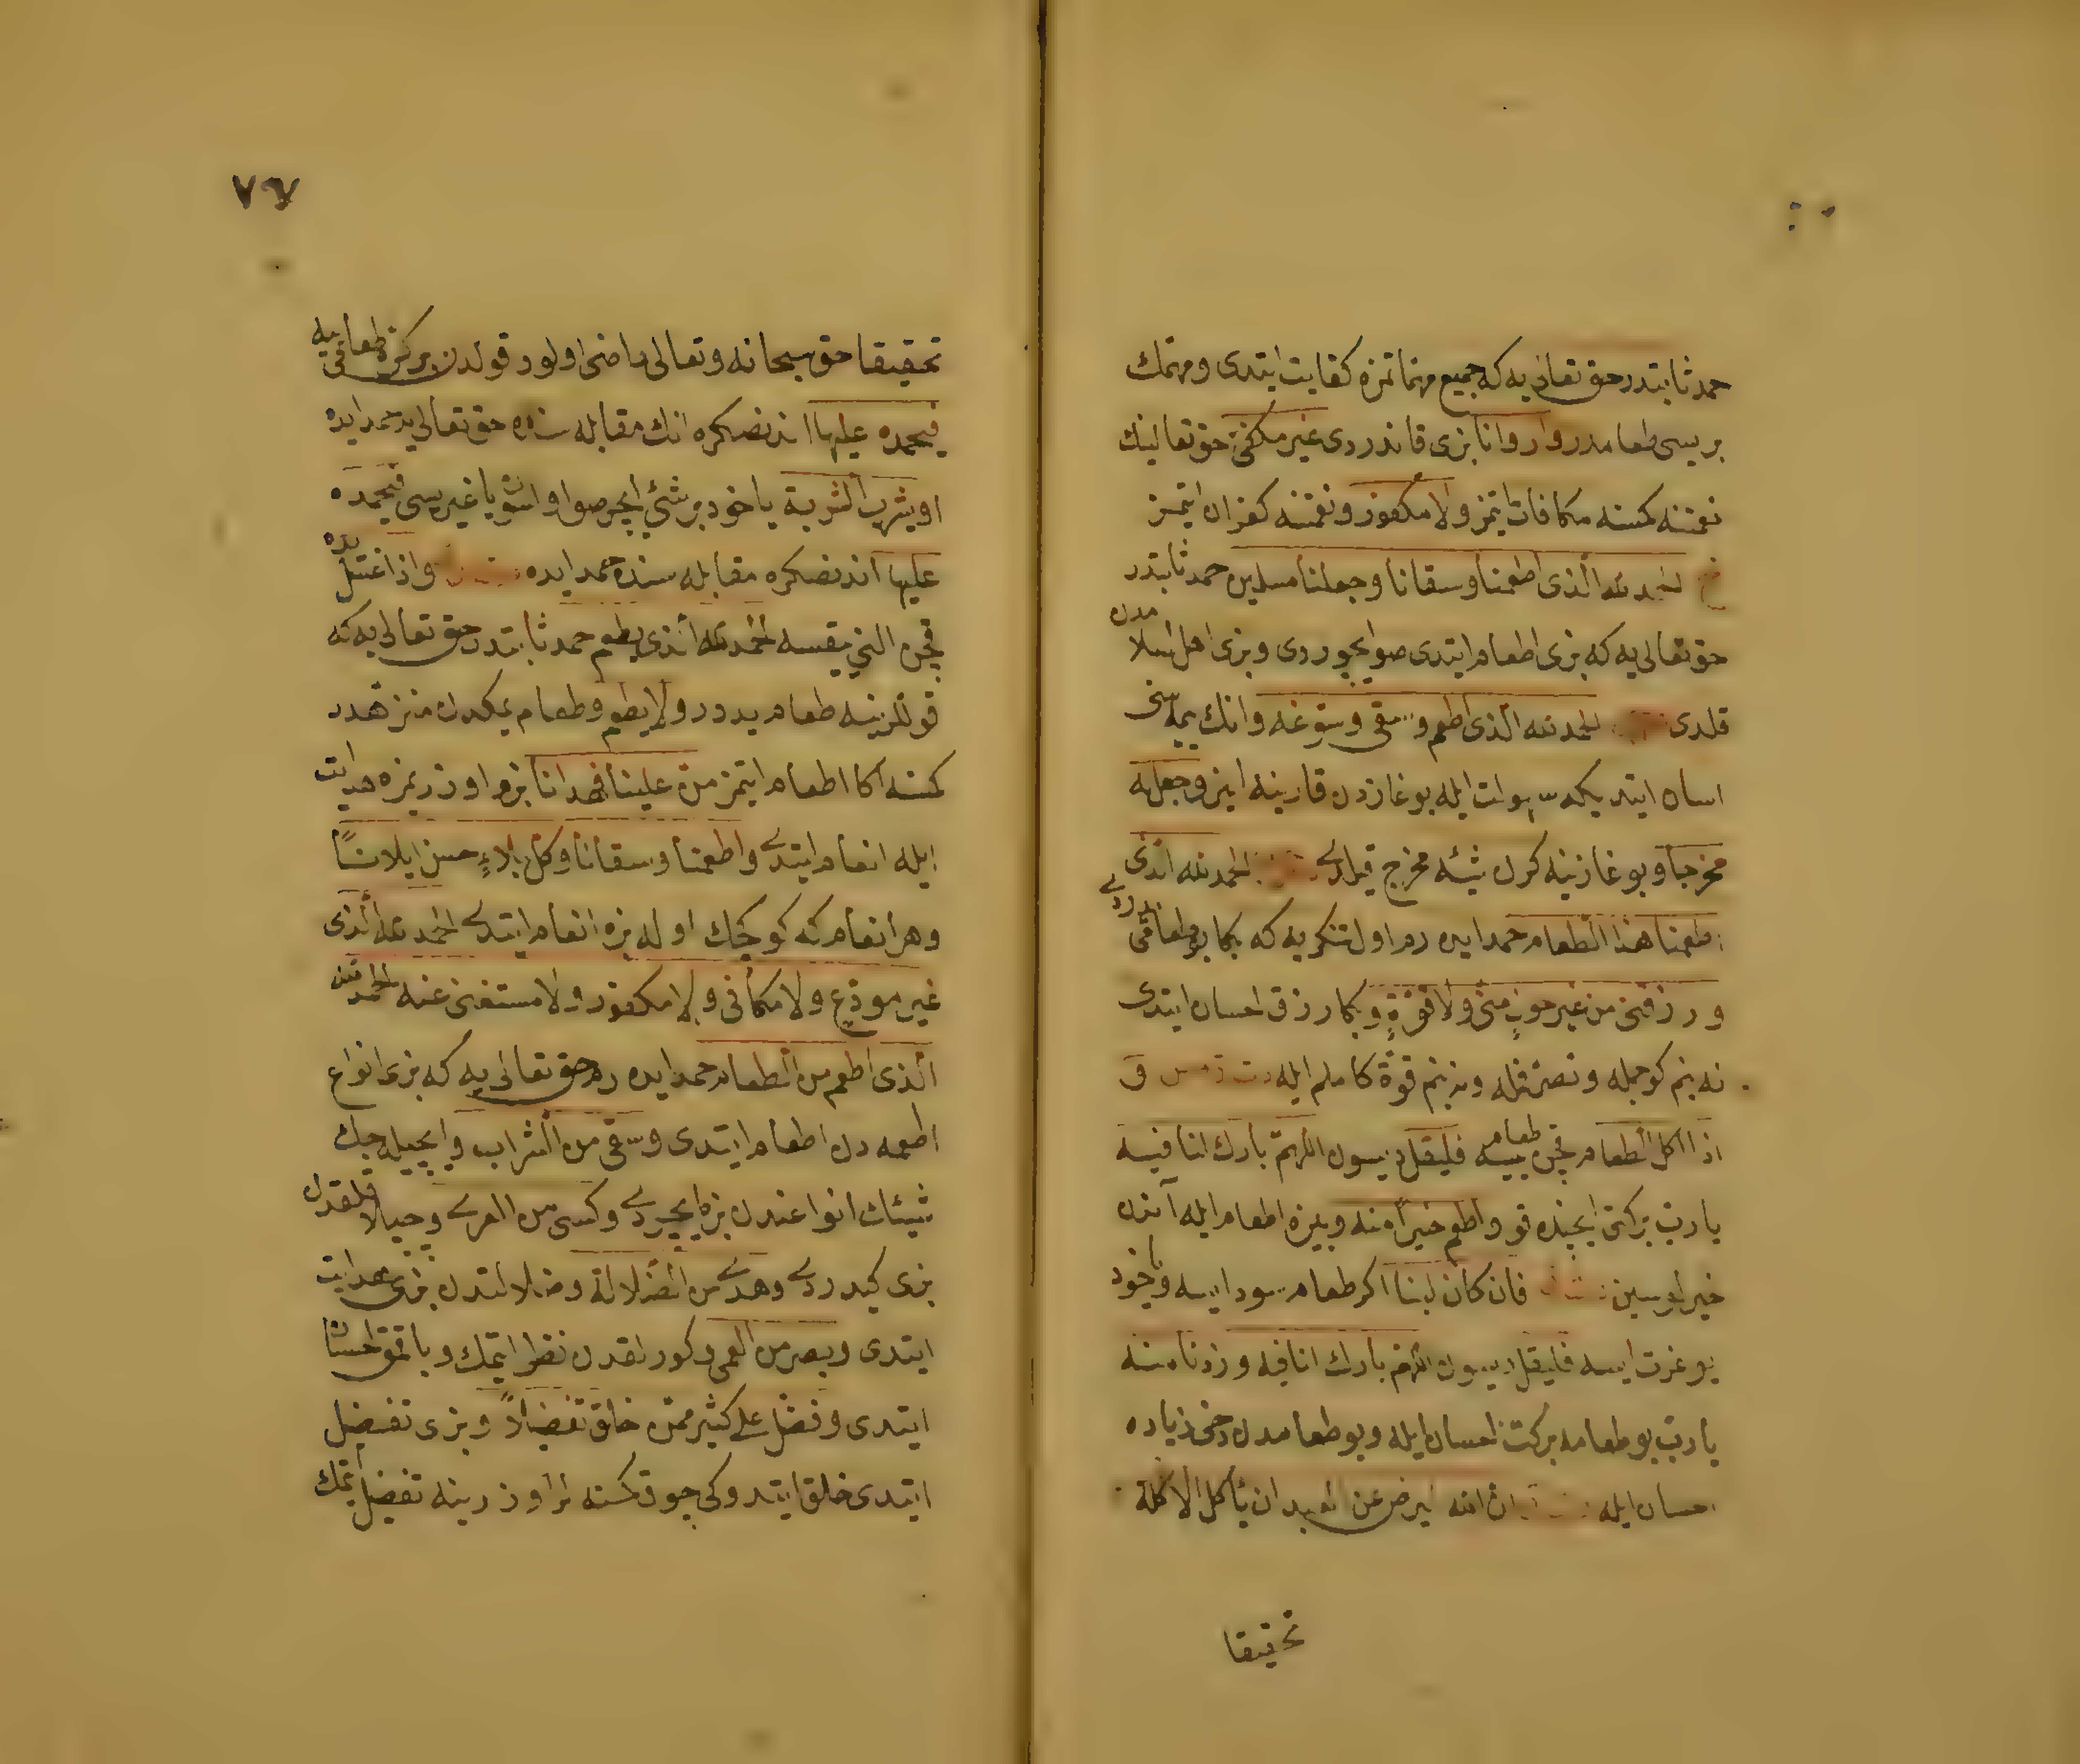 حمد ثابتدر حق تعالی یه که جمیع مهماتمزه کفایت ایتدی ومهمتك
بریسی طعامدر واروانا بزی قاندردی غیر مکفئ حق تعالینك
نعمتنه کمسنه مکافات ایتمز ولا مکفور ونعمتنه کفران ایتمز
الحمد لله الذی اطعمنا وسقانا وجعلنا مسلمین حمد ثابتدر
حق تعالی یه که بزی اطعام ایتدی صو ایچوردی وبزی اهل اسلامدن
قلدی الحمد لله الذی اطعم وسقی وسوغه وانك یمه سنی
اسان ایتدی سهولت ایله بوغازدن قارینه اینر وجعل له
مخرجا وبوغازینه کرن شیئه مخرج قیلدی الحمد لله الذی
اطعمنا هذا الطعام حمد ایدرم اول تنکری یه که بکا بو طعامی یدردی
ورزقنی من غیر حول منی ولا قوة وبکا رزق احسان ایتدی
نه بنم کوجمله وتصرفمله ونه بنم قوة کاملم ایله
اذا اکل الطعام قچن طعام ییسه فلیقل دیسون اللهم بارك لنا فیه
یا رب برکتی ایچنده قو واطعم خیرا منه وبیزه اطعام ایله آندن
خیرلوسین فان کان لبنا اکر طعام سود ایسه ویاخود
یوغرت ایسه فلیقل دیسون اللهم بارك لنا فیه وزدنا منه
یا رب بو طعامه برکت احسان ایله وبو طعامدن دخی زیاده
احسان ایله ان الله لیرضی عن العبد ان یأکل الاکلة
تحقیقا
٧٦
تحقیقا حق سبحانه وتعالی راضی اولور قولدن برکره طعامی ییه
فیحمده علیها اندنصکره انك مقابله سنده حق تعالی یه حمد ایده
او یشرب الشربة یاخود بر شئی ایچر صو اولسون یا غیریسی فیحمده
علیها اندنصکره مقابله سنده حمد ایده واذا غسل یده
قچن الینی یقسه الحمد لله الذی یطعم حمد ثابتدر حق تعالی یه که
قوللرینه طعام یدرر ولا یطعم وطعام یمکدن منزهدر
کمسنه اکا اطعام ایتمز من علینا فهدانا بزم اوزریمزه هدایت
ایله انعام ایتدی واطعمنا وسقانا وکل بلاء حسن ابلانا
وهر انعام که کوچك اوله بزه انعام ایتدی الحمد لله الذی
غیر مودع ولا مکافی ولا مکفور ولا مستغنی عنه الحمد لله
الذی اطعم من الطعام حمد ایدرم حق تعالی یه که بزی انواع
اطعمه دن اطعام ایتدی وسقی من الشراب وایچیله جك
شیئلت انواعندن بزه ایچردی وکسی من العری وچیپلاقلقدن
بزی کیدردی وهدی من الضلالة وضلالتدن بزی هدایت
ایتدی وبصر من العمی وکورلقدن نظر ایتمك وباقمق احسان
ایتدی وفضل علی کثیر ممن خلق تفضیلا وبزی تفضیل
ایتدی خلق ایتدوکی چوق کسنه لر اوزرینه تفضیل ایتمك